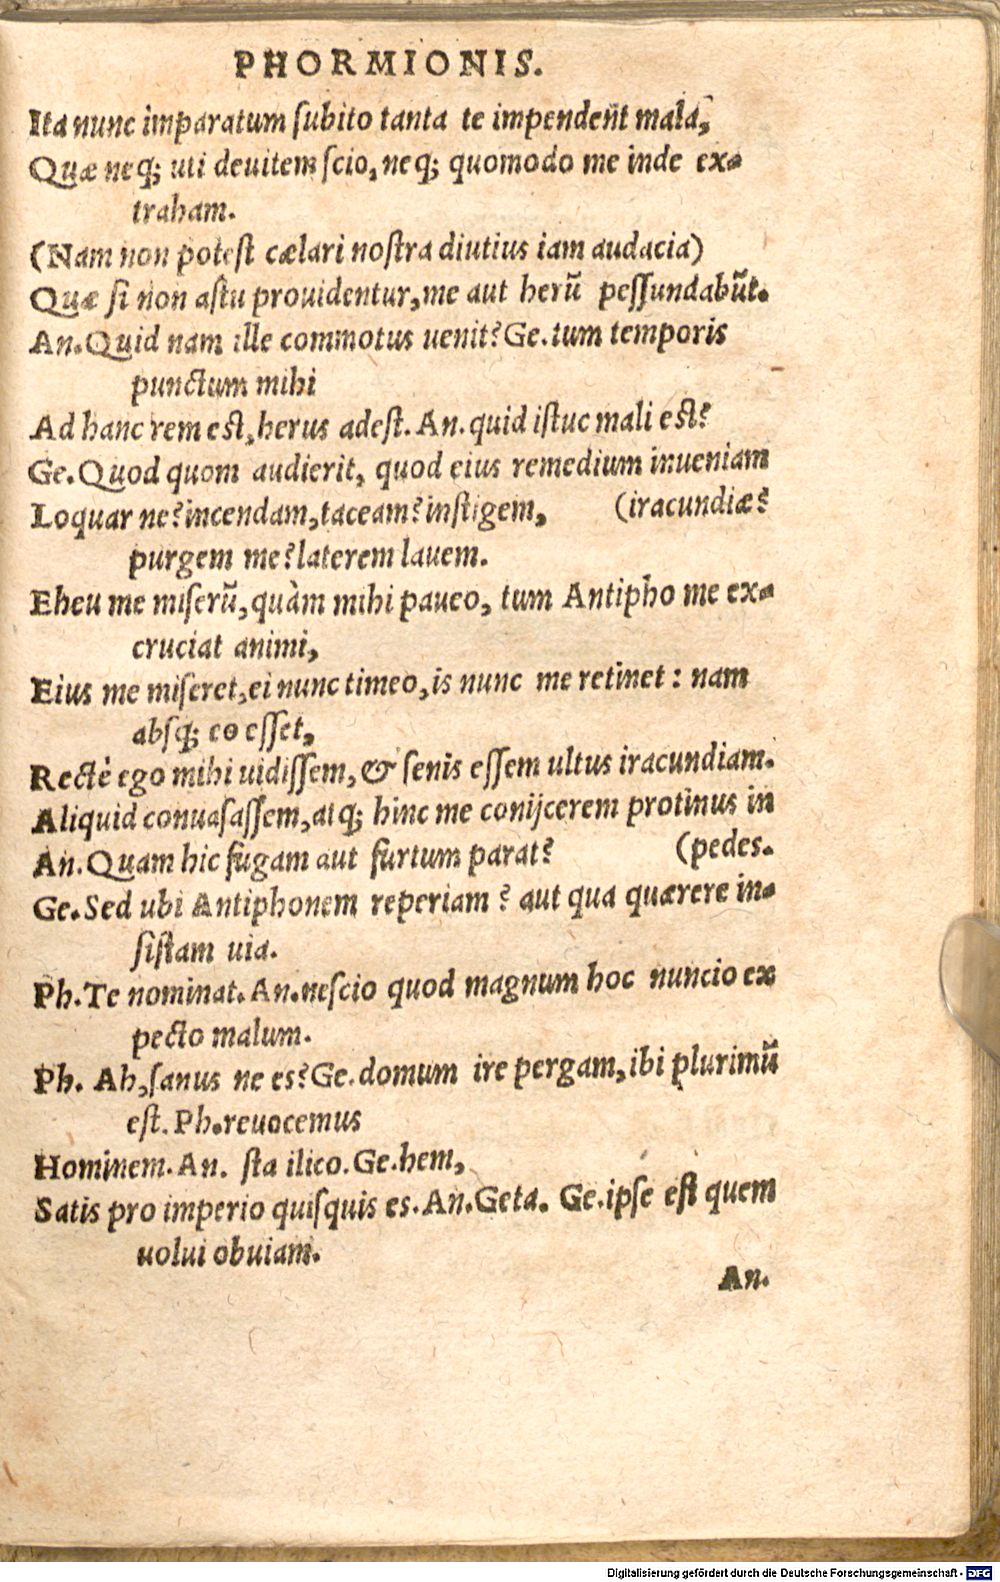 PHORMIONIS.
Ita nunc imparatum ſubito tanta te impendeñt mala,
Quæ neq; uti deuitem ſcio, neq; quomodo me inde ex-
traham.
(Nam non poteſt cælari noſtra diutius iam audacia)
Quæ ſi non aſtu prouidentur, me aut herũ peſſundabũt.
An. Quid nam ille commotus uenit? Ge. tum temporis
punctum mihi
Ad hanc rem est, herus adeſt. An. quid iſtuc mali est?
Ge. Quod quom audierit, quod eius remedium inueniam
Loquar ne? incendam, taceam? inſtigem, (iracundiæ?
purgem me? laterem lauem.
Eheu me miſerũ, quàm mihi paueo, tum Antipho me ex-
cruciat animi,
Eius me miſeret, ei nunc timeo, is nunc me retinet : nam
abſq; eo eſſet,
Rectè ego mihi uidiſſem, & ſenis eſſem ultus iracundiam.
Aliquid conuaſaſſem, atq; hinc me conijcerem protinus in
An. Quam hic fugam aut furtum parat? (pedes.
Ge. Sed ubi Antiphonem reperiam? aut qua quærere in-
ſiſtam uia.
Ph. Te nominat. An. neſcio quod magnum hoc nuncio ex
pecto malum.
Ph. Ah, ſanus ne es? Ge. domum ire pergam, ibi plurimũ
eſt. Ph. reuocemus
Hominem. An. ſta ilico. Ge. hem,
Satis pro imperio quiſquis es. An. Geta. Ge. ipſe eſt quem
uolui obuiam.
An.
Digitalisierung gefördert durch die Deutsche Forschungsgemeinschaft - DFG